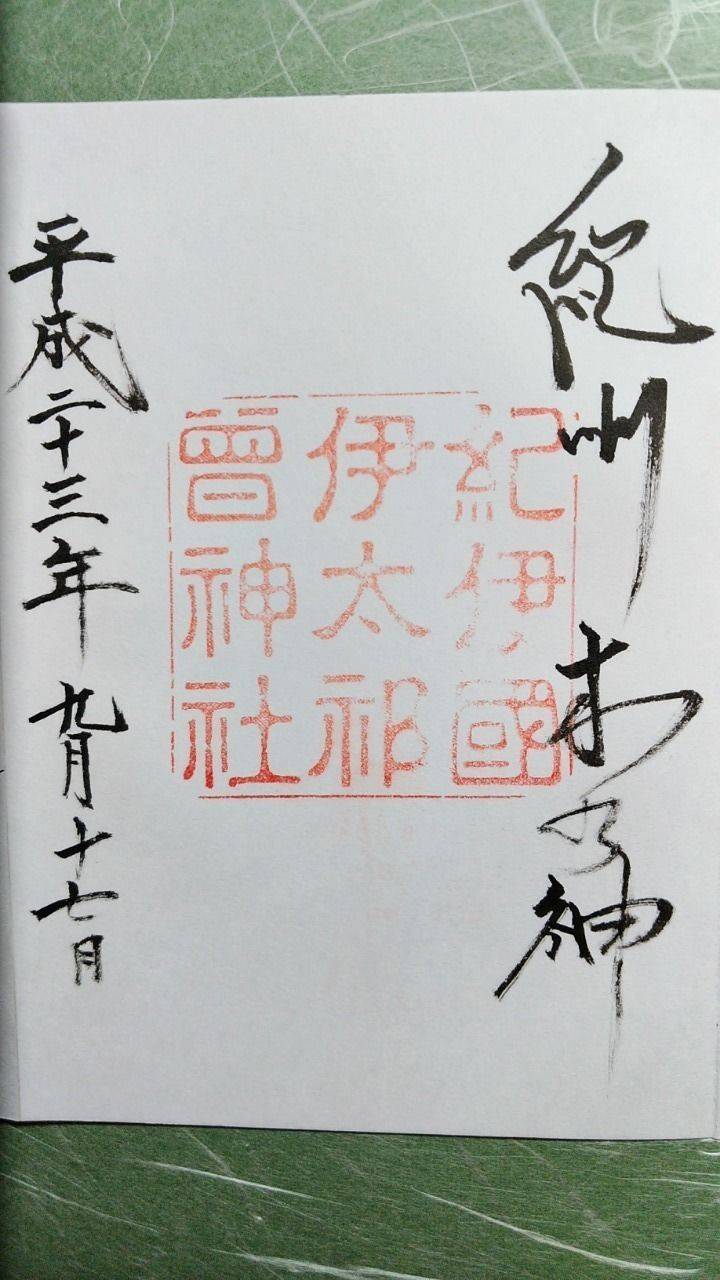 紀州木の神
紀伊國
伊太祁
曾神社
平成二十三年九月十七日